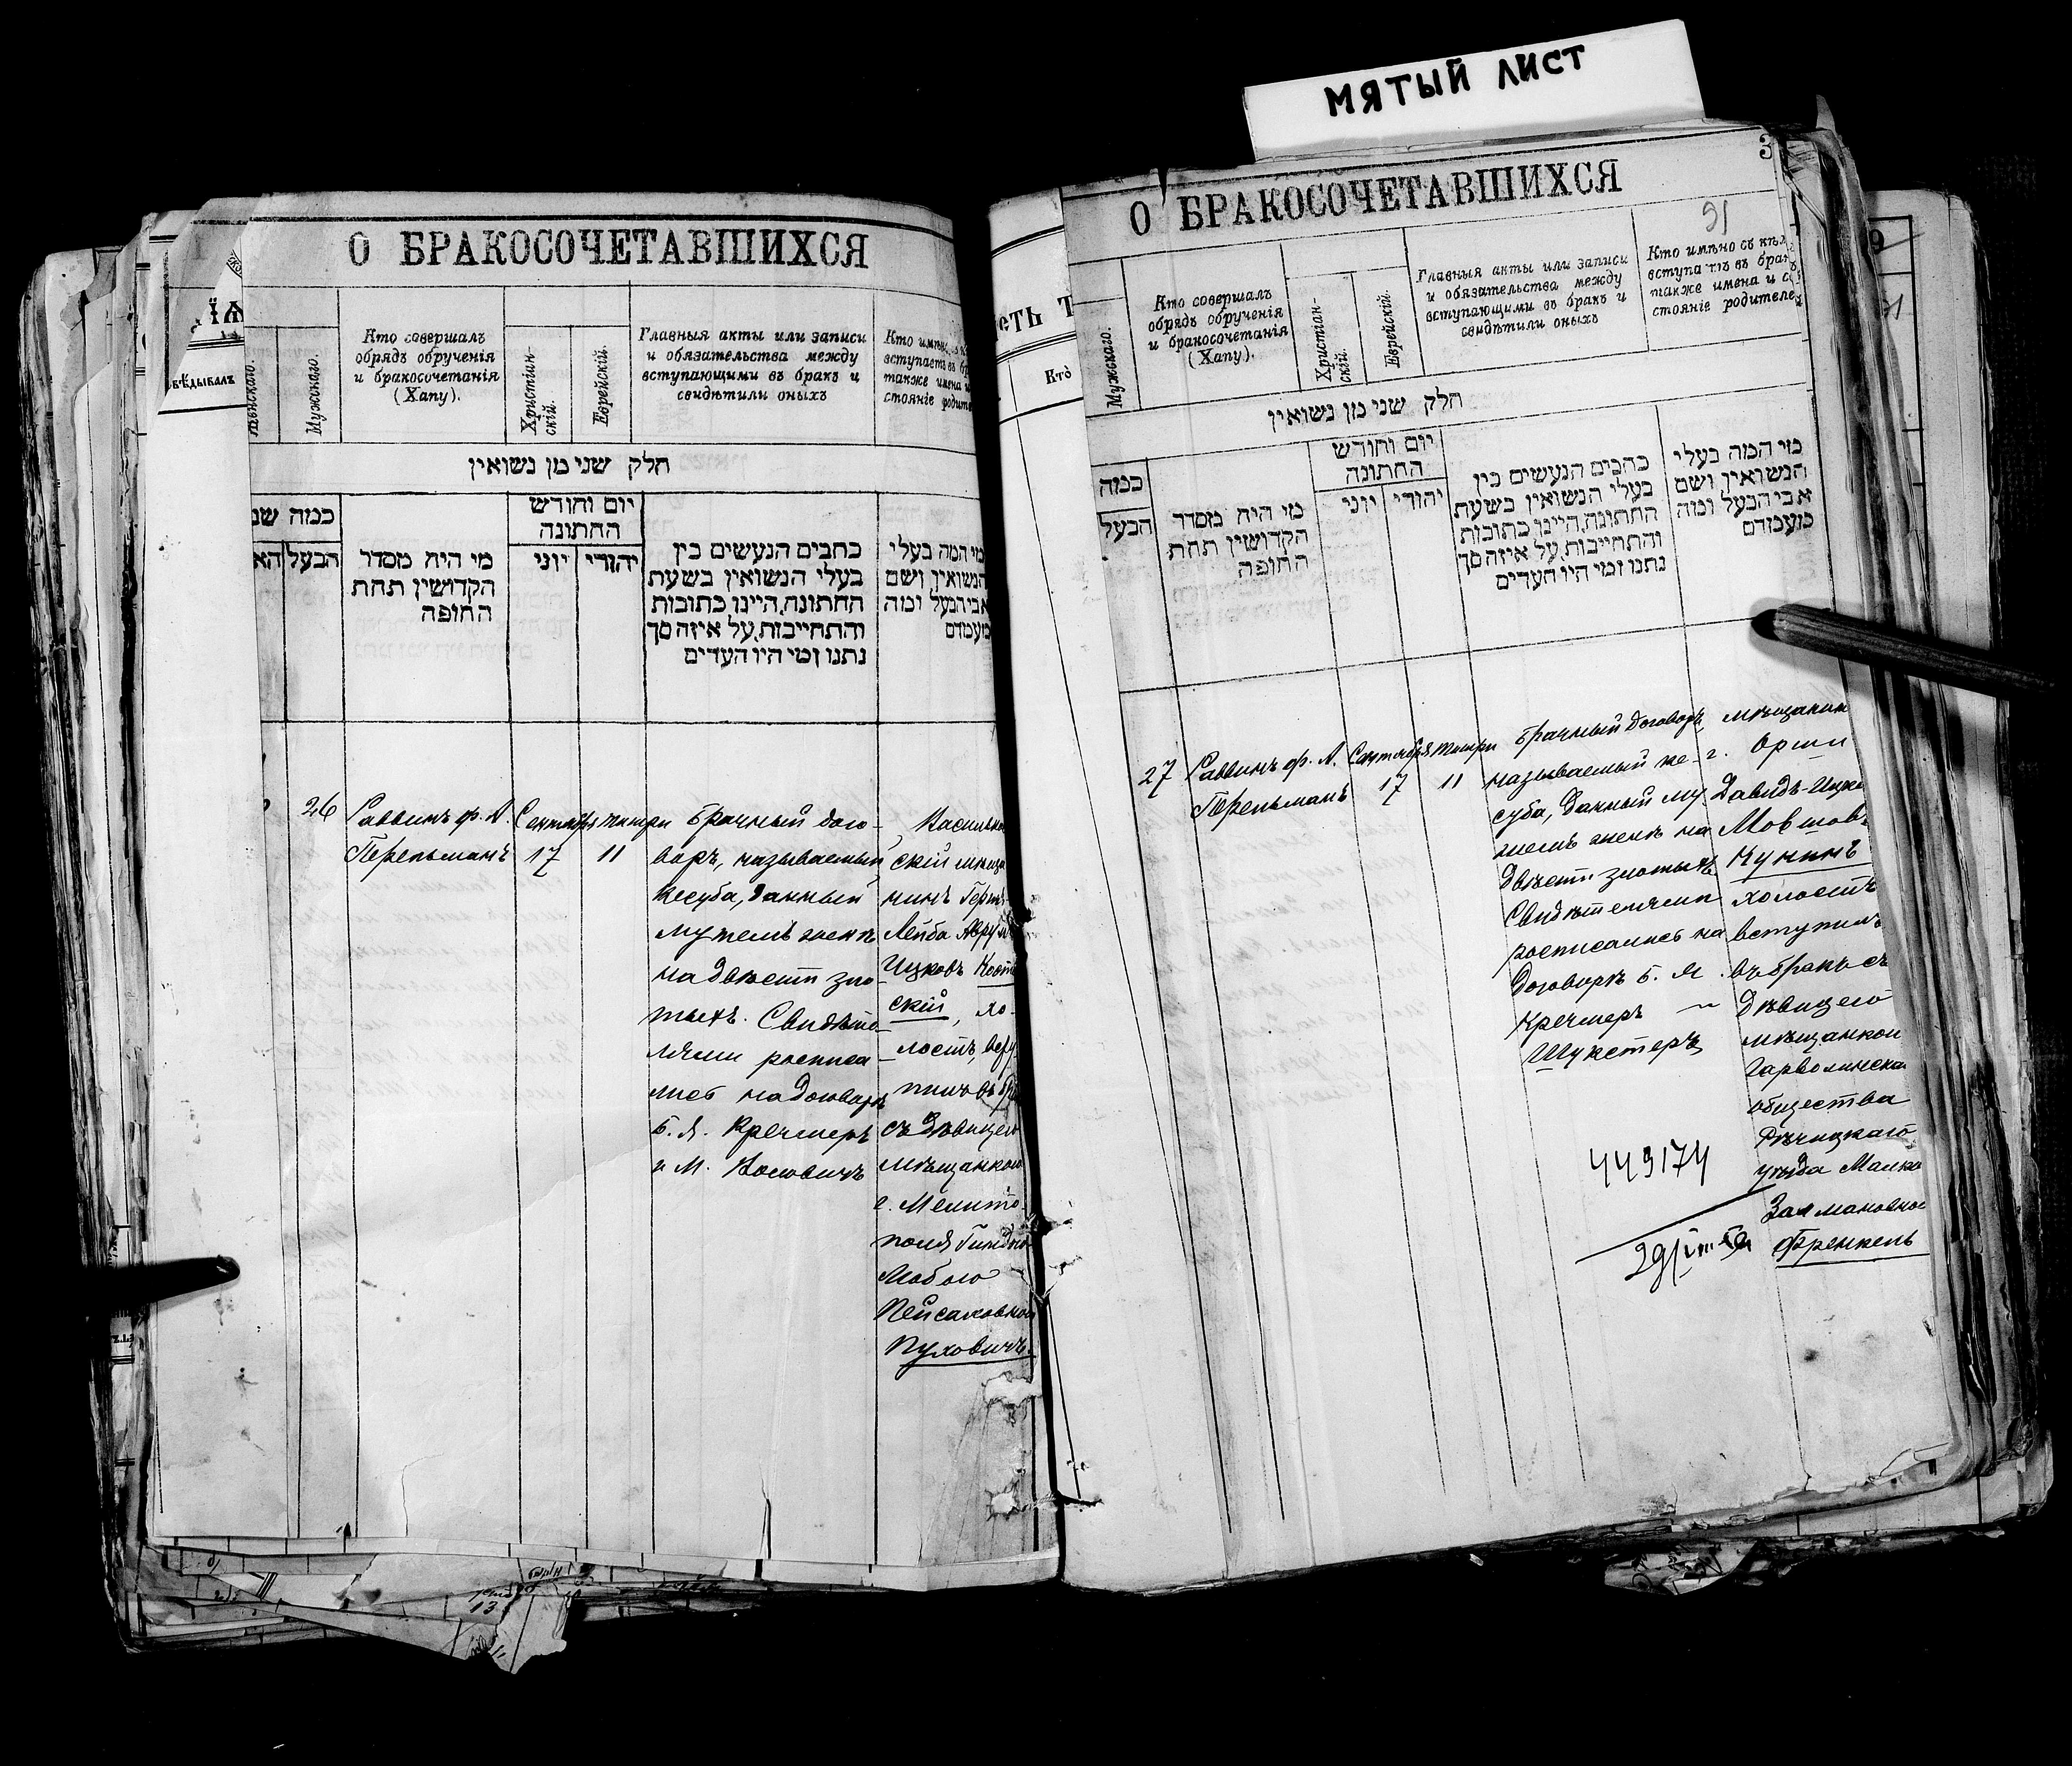 МЯТЫЙ ЛИСТ
О БРАКОСОЧЕТАВШИХСЯ
Мужскаго.
Кто совершалъ
обрядъ обрученія
и бракосочетанія
(Хапу).
Христіан-
скій.
Еврейскій.
Главныя акты или записи
и обязательства между
вступающими въ бракъ и
свидѣтили оныхъ
Кто имѣно
вступаетъ въ
также имена и
стояніе родите
חלק שני מן נשואין
כמה שנ
הבעל
הא
מי היה מסדר
הקדושין תחת
החופה
יום וחודש
החתונה
יוני
יהודי
כתבים הנעשים בין
בעלי הנשואין בשעת
החתונה, היינו כתובות
והתחייבות, על איזה סך
נתנו ומי היו העדים
מי המה בעלי
הנשואין ושם
אבי הבעל ומה
מעמדם
26
Раввинъ ф. А.
Перельманъ
Сентября
17
Тишри
11
Брачный дого-
воръ, называемый
Кесуба, данный
мужемъ женѣ
на двѣсти зло-
тыхъ. Свидѣте-
лями росписа-
лись на договорѣ
Б. Я. Кречмеръ
и М.
Василько
скій мѣща
нинъ Герш
Лейба Авру
Ицковъ
скій, хо-
лостъ, всту
пилъ въ бр
съ дѣвицею
мѣщанкою
г. Мелито-
поля
Любою
Пейсаховною
Пуховичъ.
3
91
О БРАКОСОЧЕТАВШИХСЯ
Мужскаго.
Кто совершалъ
обрядъ обрученія
и бракосочетанія
(Хапу).
Христіан-
скій.
Еврейскій.
Главныя акты или записи
и обязательства между
вступающими въ бракъ и
свидѣтили оныхъ
Кто имѣно съ кѣ
вступа тъ въ брак
также имена и со
стояніе родителе
חלק שני מן נשואין
כמה
הבעל
מי היה מסדר
הקדושין תחת
החופה
יום וחודש
החתונה
יוני
יהודי
כתבים הנעשים בין
בעלי הנשואין בשעת
החתונה, היינו כתובות
והתחייבות, על איזה סך
נתנו ומי היו העדים
מי המה בעלי
הנשואין ושם
אבי הבעל ומה
מעמדם
27
Раввинъ ф. А.
Перельманъ
Сентября
17
Тишри
11
Брачный договоръ,
называемый ке-
суба, данный му-
жемъ женѣ на
двѣсти злотыхъ
Свидѣтелями
росписались на
договорѣ Б. Я.
Кречмеръ
Шукстеръ
мѣщанин
г. Орши
Давидъ-Ицко
Мовшовъ
Кунинъ
холостъ
вступилъ
въ бракъ съ
дѣвицею
мѣщанкой
Гарволинска
общества
Рѣчицкаго
уѣзда Малко
Залмановно
Френкель
449174